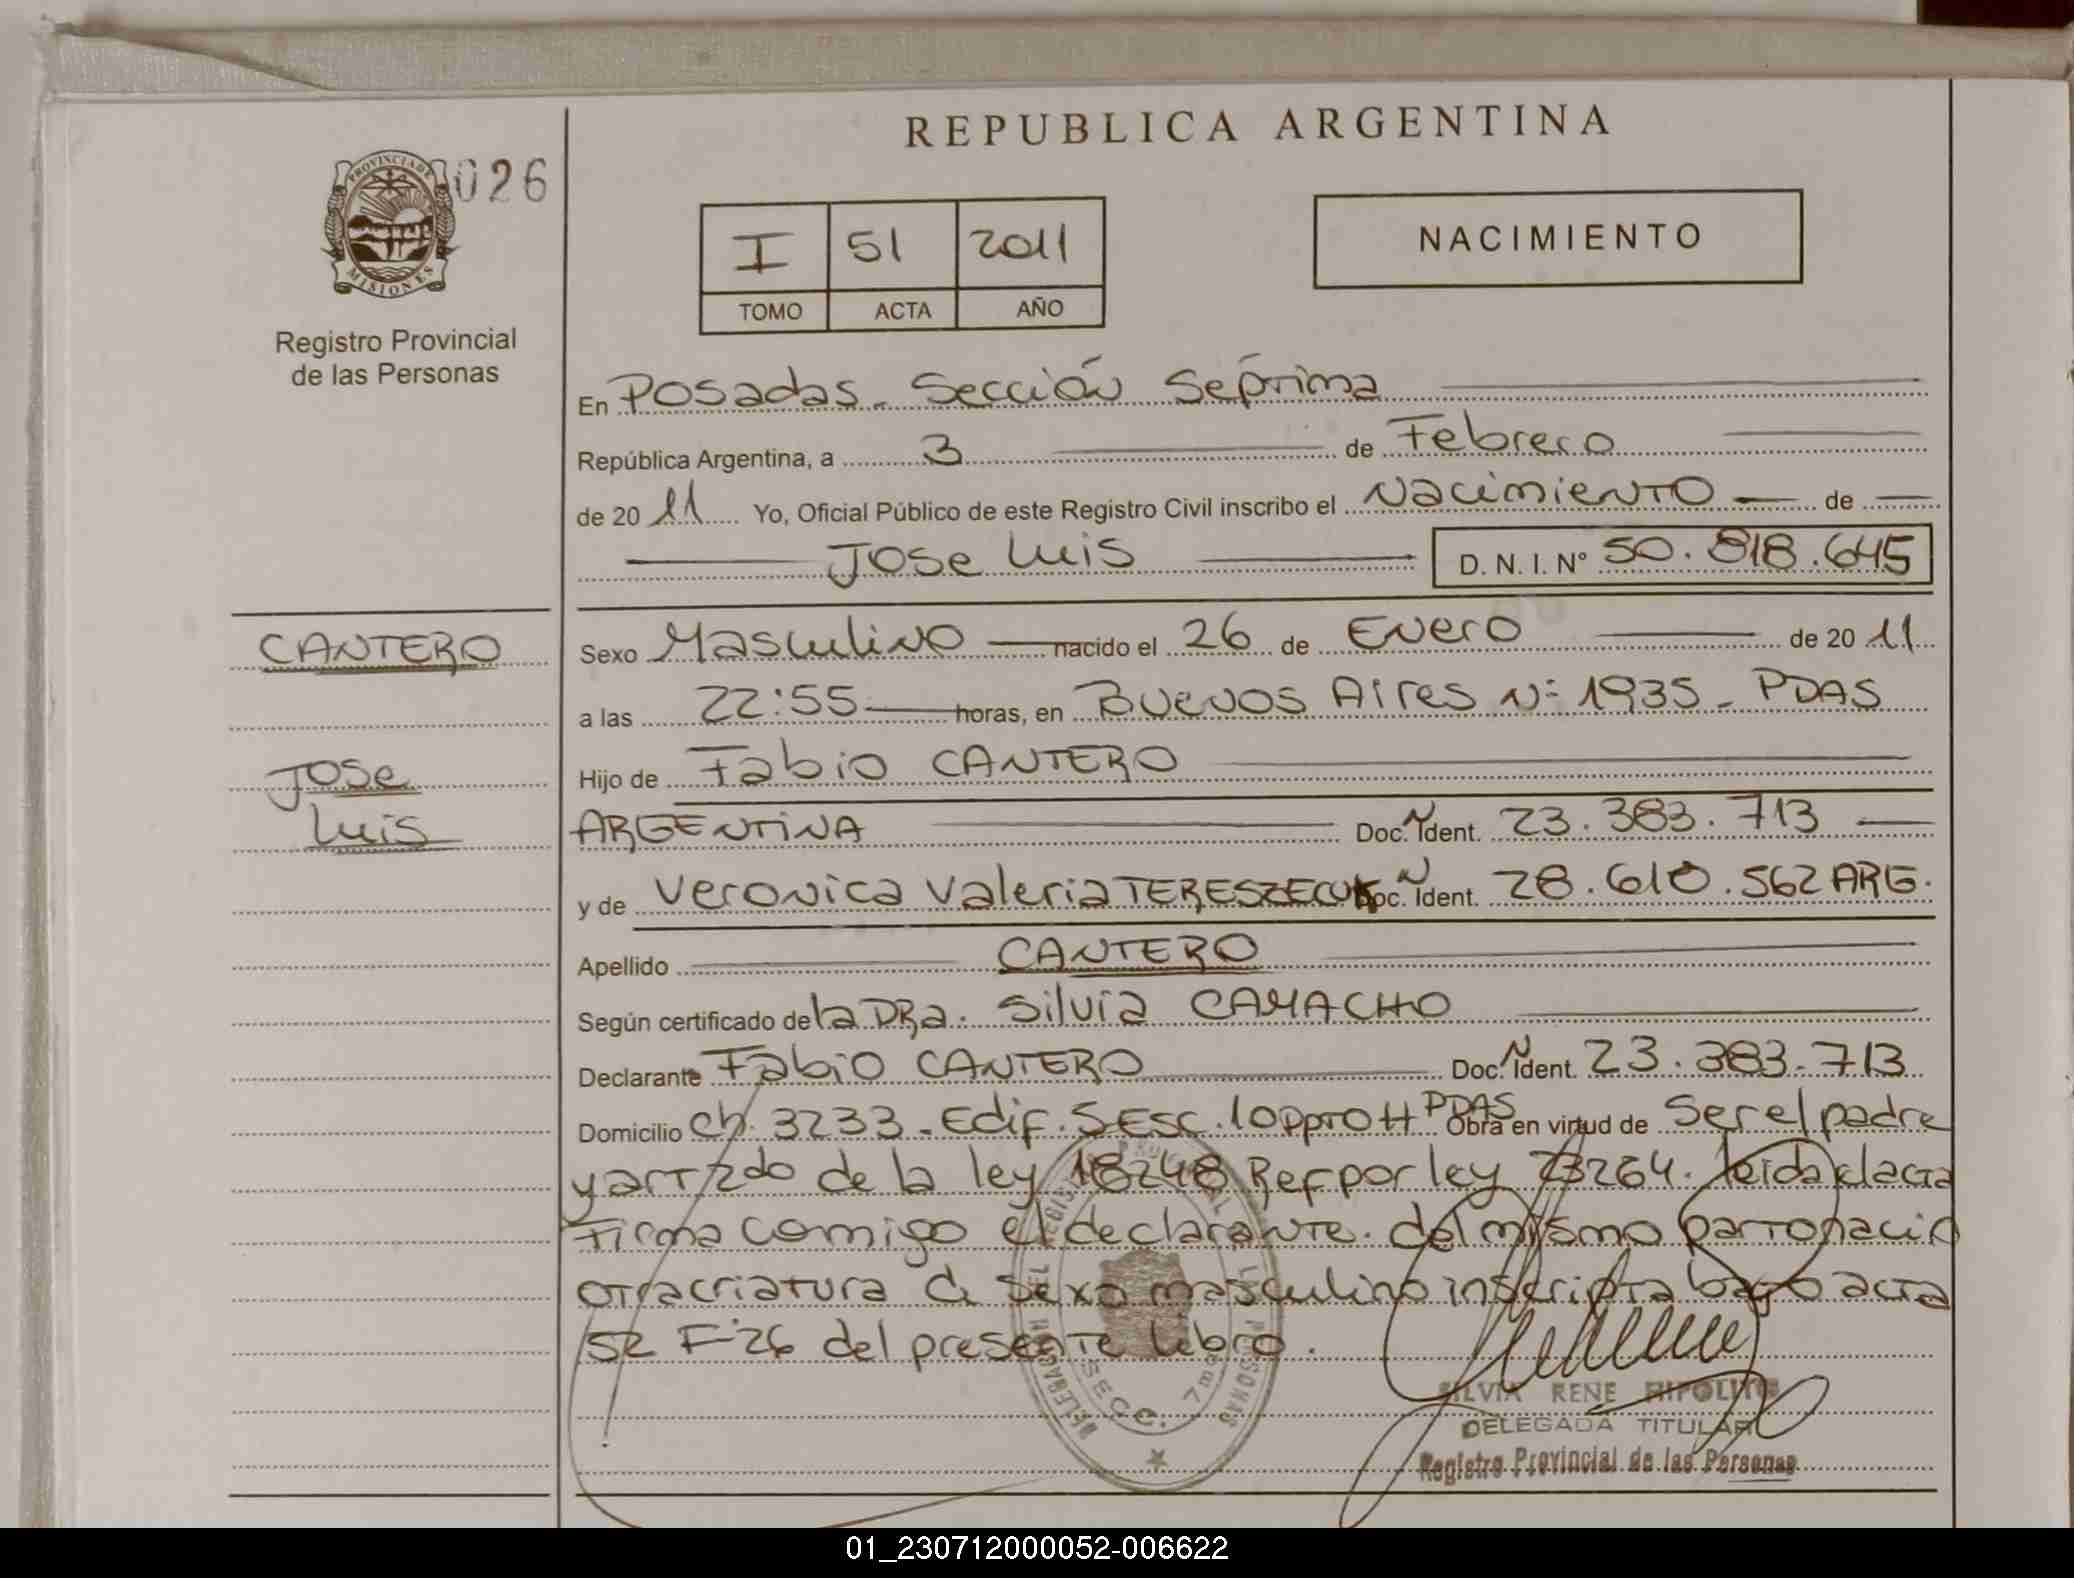 REPUBLICA ARGENTINA
026
PROVINCIA DE
MISIONES
Registro Provincial
de las Personas
I 51 2011
TOMO ACTA AÑO
NACIMIENTO
En Posadas. Sección Séptima
República Argentina, a 3 de Febrero
de 20 11 Yo, Oficial Público de este Registro Civil inscribo el Nacimiento de
Jose Luis D. N. I. Nº 50.818.645
CANTERO
Jose
Luis
Sexo Masculino nacido el 26 de Enero de 20 11
a las 22:55 horas, en Buenos Aires Nº 1935 - PDAS
Hijo de Fabio CANTERO
ARGENTINA Doc. N Ident. 23.383.713
y de Veronica Valeria TERESZECUK Doc. N Ident. 28.610.562 ARG.
Apellido CANTERO
Según certificado de la DRa. Silvia CAMACHO
Declarante Fabio CANTERO Doc. N Ident. 23.383.713
Domicilio Ch. 3233 - Edif. 5 Esc. 10 Dpto H PDAS Obra en virtud de Ser el padre
y art 2do de la ley 18248 Ref por ley 23264. leida el acta
Firma comigo el declarante. del mismo parto nacio
otra criatura de sexo masculino inscripta bajo acta
52 Fº 26 del presente libro.
SECC. 7ma
SILVIA RENE HIPOLITO
DELEGADA TITULAR
Registro Provincial de las Personas
01_230712000052-006622